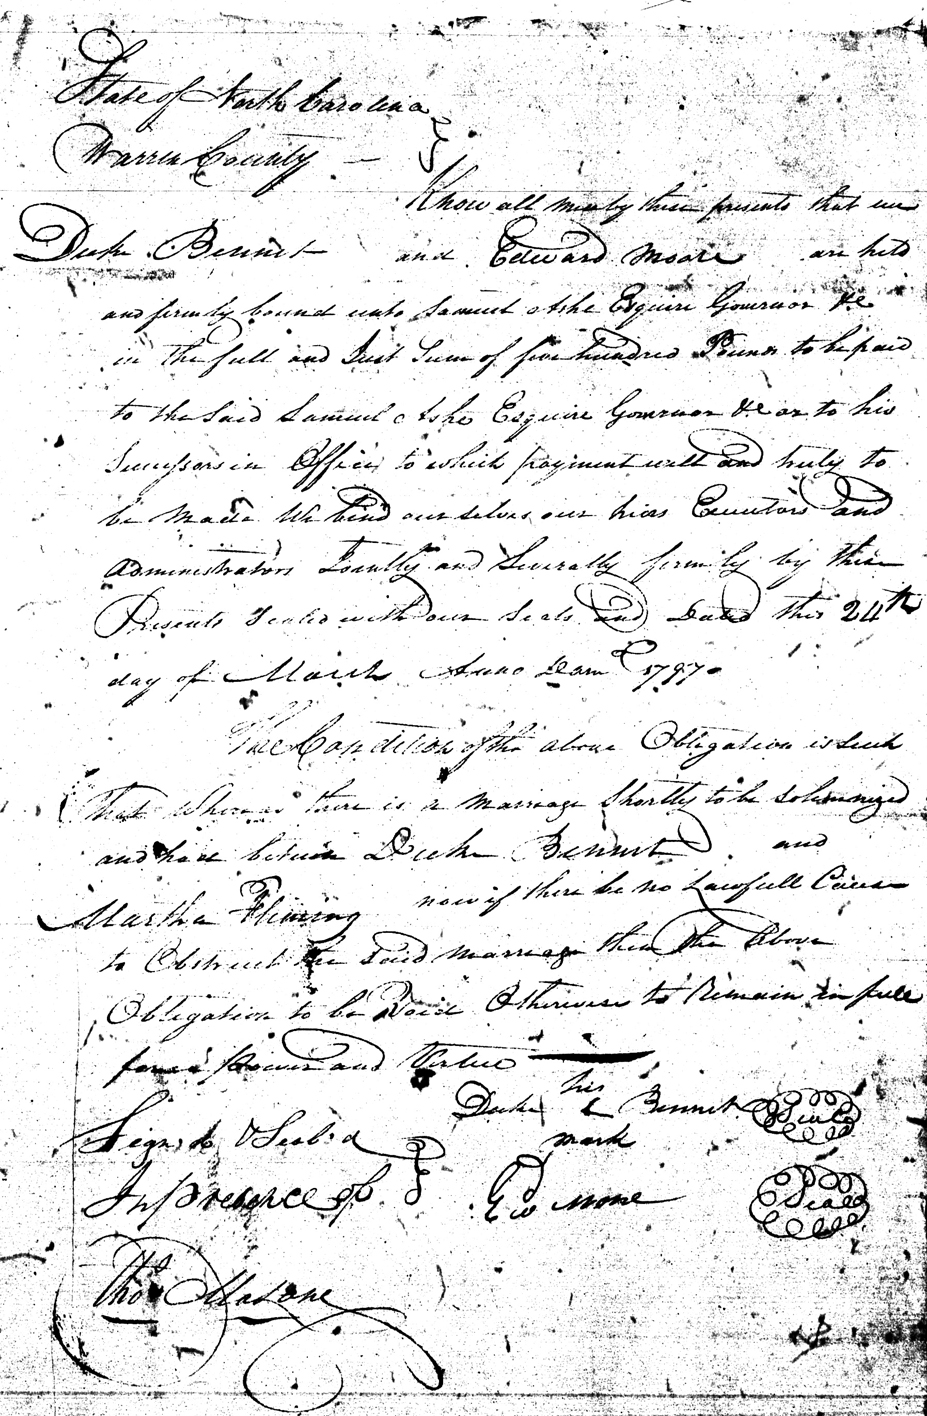 State of North Carolina
Warren County
Know all men by these presents that we
Duke Bennet and Edward Moore are held
and firmly bound unto Samuel Ashe Esquire Governor &c
in the full and Just Sum of five hundred Pounds to be paid
to the said Samuel Ashe Esquire Governor &c or to his
Successors in Office to which payment well and truly to
be made We bind our selves our hiers Executors and
Administrators Jointly and Severally firmly by these
Presents Sealed with our Seals and Dated this 24th
day of March Anno Dom 1797
The Condition of the above Obligation is such
that Whereas there is a marriage Shortly to be Solemnized
and had between Duke Bennet and
Martha Fleming now if there be no Lawfull Cause
to Obstruct the Said marriage then the Above
Obligation to be Void Otherwise to Remain in full
force power and Virtue
Duke his Bennet Seal
mark
Signd & Seal.d
In presence of Ed Moore Seal
Thos Malone